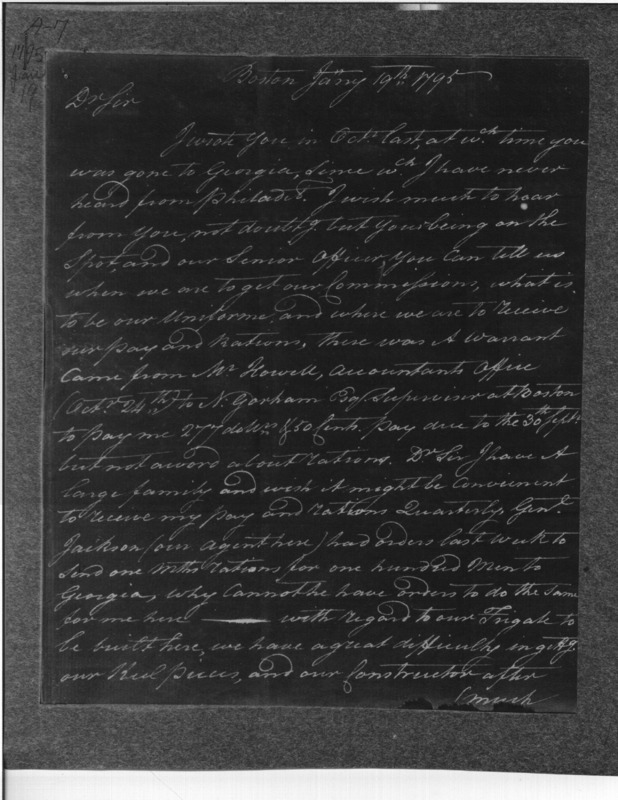 Boston Jany 19th 1795
Dr Sir
I wrote You in Octr last, at wch time you
was gone to Georgia, Since wch I have never
heard from Philada. I wish much to hear
from You, not doubtg but your being on the
Spot, and our Senior Officer you Can tell us
when we are to get our Commissions, what is
to be our Uniforme and where we are to receive
our pay and Rations, there was A Warrant
Came from Mr Howell, Accountants Office
(Octr 24th) to N. Gorham Esq Supervisor at Boston
to pay me 277 dollrs & 50 Cents. pay due to the 30th Septr
but not a word about rations. Dr Sir I have A
large family and wish it might be Convenient
to receive my pay and rations Quarterly, Genl
Jackson (our Agent here) had orders last week to
Send one Mths rations for one hundred Men to
Georgia, why Cannot he have orders to do the Same
for me here with regard to our Frigate to
be built here, we have a great difficulty in gettg
our Keel pieces, and our Constructor after
much